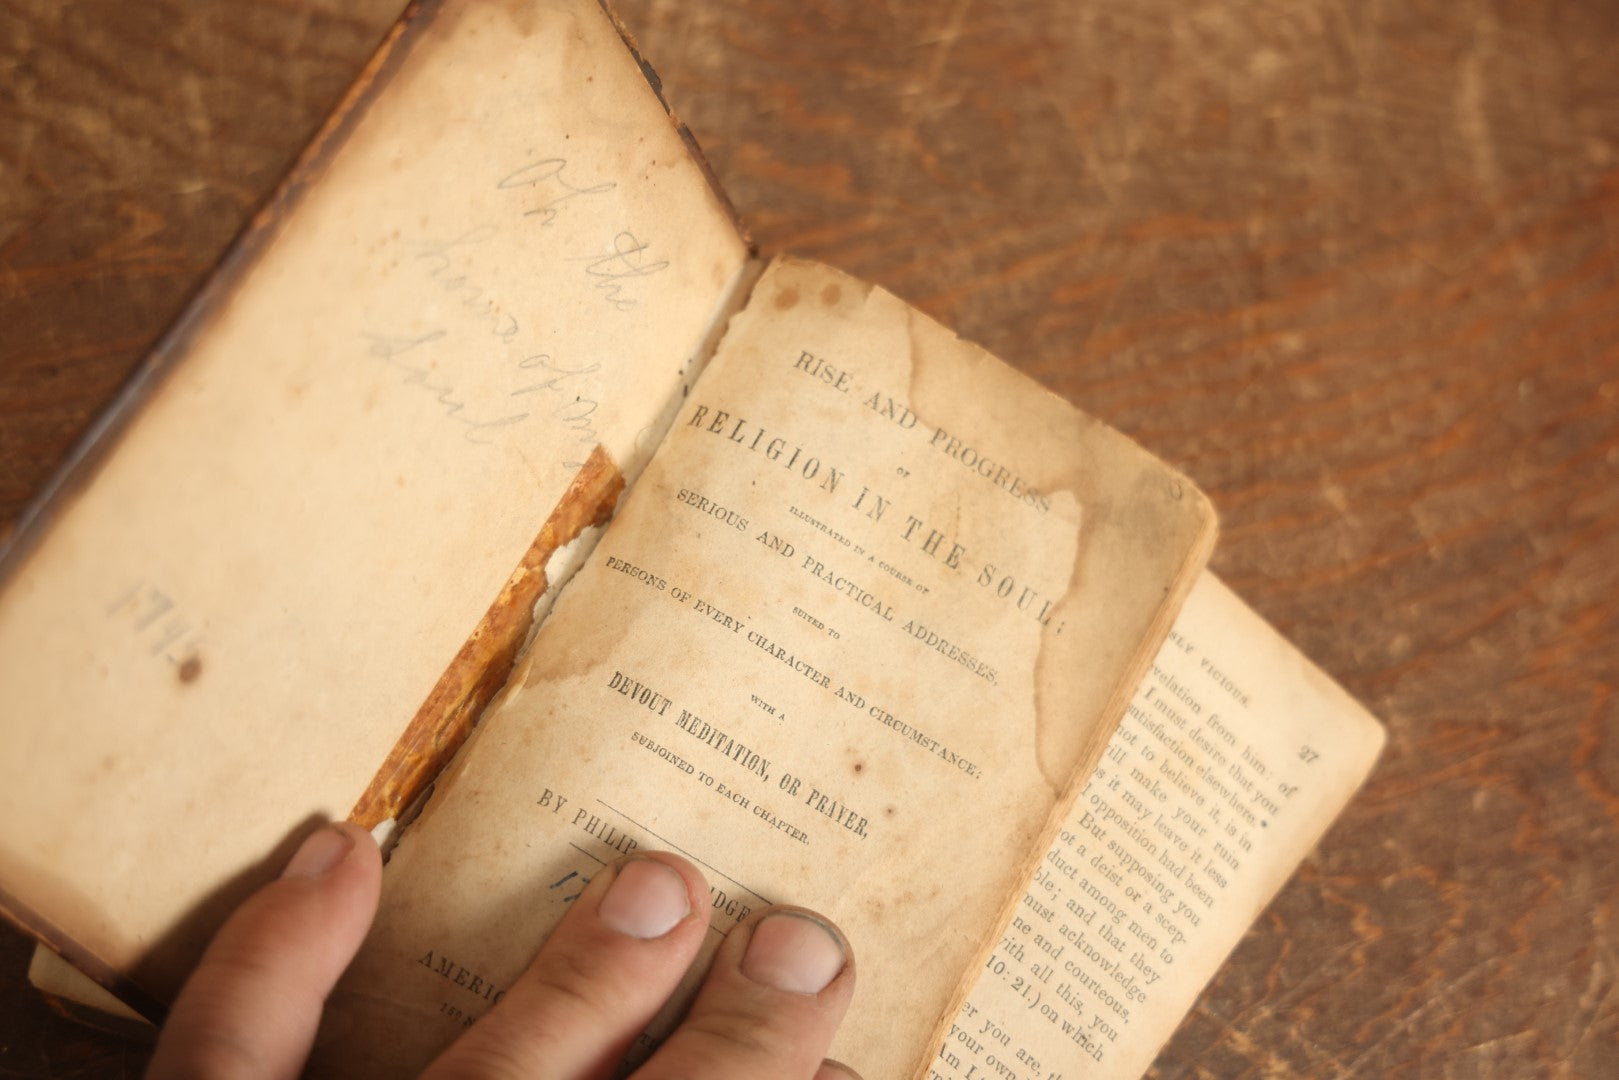 Oh the
home of my
Soul
1745
RISE AND PROGRESS
OF
RELIGION IN THE SOUL;
ILLUSTRATED IN A COURSE OF
SERIOUS AND PRACTICAL ADDRESSES,
SUITED TO
PERSONS OF EVERY CHARACTER AND CIRCUMSTANCE:
WITH A
DEVOUT MEDITATION, OR PRAYER,
SUBJOINED TO EACH CHAPTER.
BY PHILIP
17
AMERIC
150 N
SLY VICIOUS. 27
velation from him: of
I must desire that you
satisfaction elsewhere.*
not to believe it, is in
will make your ruin
s it may leave it less
opposition had been
But supposing you
ot a deist or a scep-
duct among men to
ble; and that they
must acknowledge
ne and courteous,
with all this, you
10:21.) on which
er you are,
your own
Am I